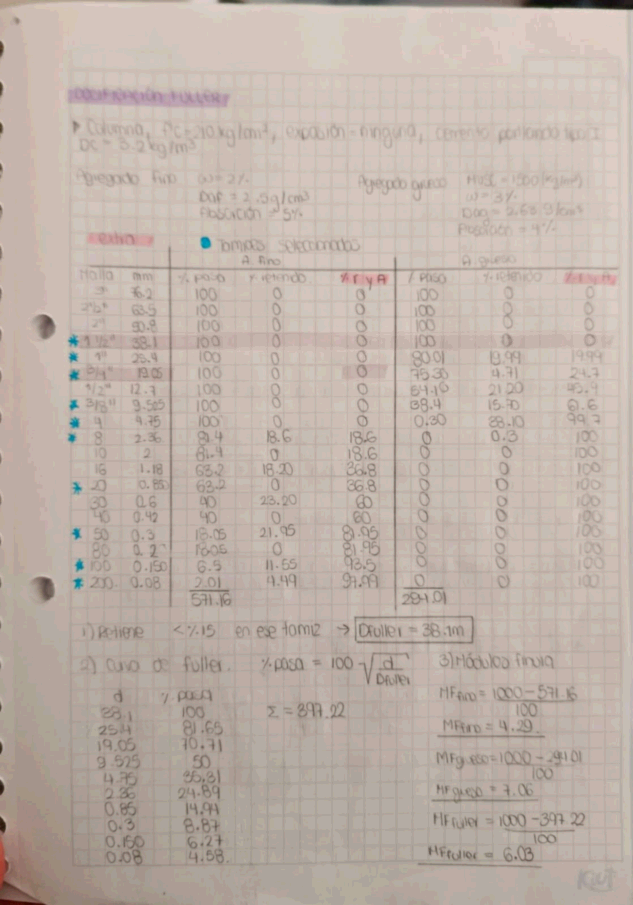 DOSIFICACIÓN FULLER
Columna, f'c=210 kg/cm², exposición=ninguna, cemento portland tipo I
DC = 3.2 kg/m³
Agregado fino W = 2%
DAF = 2.5 g/cm³
Absorción = 5%
Agregado grueso
W = 3%
Absorción = 4%
extra
Tamices seleccionados
A. fino A. grueso
Malla mm % pasa % retenido % r y A % pasa % retenido % r y A
3" 76.2 100 0 0 100 0 0
2½" 63.5 100 0 0 100 0 0
2" 50.8 100 0 0 100 0 0
1½" 38.1 100 0 0 100 0 0
1" 25.4 100 0 0 80.01 19.99 19.99
3/4" 19.05 100 0 0 75.30 4.71 24.7
1/2" 12.7 100 0 0 54.10 21.20 45.9
3/8" 9.525 100 0 0 38.4 15.70 61.6
4 4.75 100 0 0 0.30 38.10 99.7
8 2.36 81.4 18.6 18.6 0 0.3 100
10 2 81.4 0 18.6 0 0 100
16 1.18 63.2 18.20 36.8 0 0 100
20 0.850 63.2 0 36.8 0 0 100
30 0.6 40 23.20 60 0 0 100
40 0.42 40 0 60 0 0 100
50 0.3 18.05 21.95 81.95 0 0 100
80 0.2 18.05 0 81.95 0 0 100
100 0.150 6.5 11.55 93.5 0 0 100
200 0.08 2.01 4.49 97.99 0 0 100
571.16 294.01
1) Retiene < %15 en ese tamiz → DFuller = 38.1m
2) Curva de fuller. % pasa = 100 √d/DFuller
3) Módulos finura
d % pasa
38.1 100
25.4 81.65
19.05 70.71
9.525 50
4.75 35.31
2.36 24.89
0.85 14.94
0.3 8.87
0.150 6.27
0.08 4.58
Σ = 397.22
MFfino = 1000 - 571.16
100
MFfino = 4.29
MFgrueso = 1000 - 294.01
100
MFgrueso = 7.06
MFfuller = 1000 - 397.22
100
MFfuller = 6.03